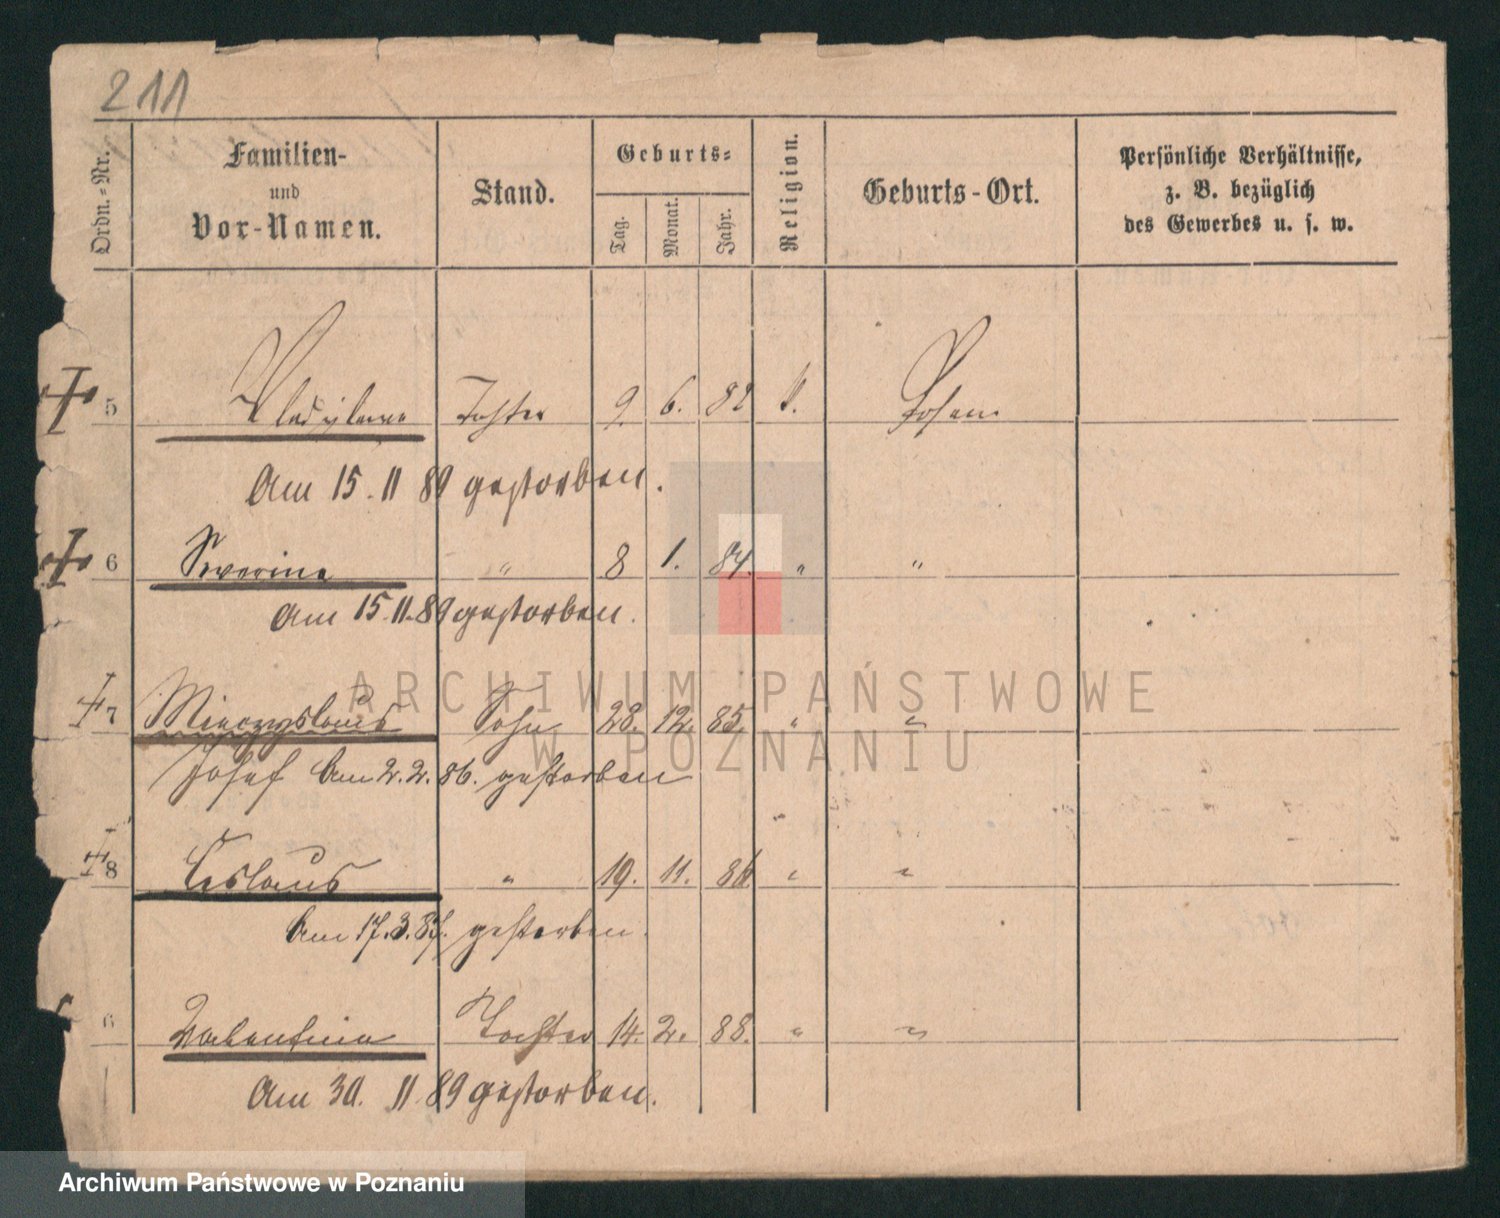 211
Ordn.-Nr.
Familien-
und
Vor-Namen.
Stand.
Geburts-
Tag.
Monat.
Jahr.
Religion.
Geburts-Ort.
Persönliche Verhältnisse,
z. B. bezüglich
des Gewerbes u. s. w.
5 Vladislawa Tochter 9 6. 82 k. Posen
Am 15. 11 89 gestorben.
6 Severina " 8 1. 84. " "
Am 15. 11. 89 gestorben.
7 Mieczyslaus Sohn 28. 12. 85. " "
Josef Am 2. 2. 86. gestorben
8 Ceslaus " 19. 11. 86 " "
Am 17. 3. 87. gestorben.
Valentina Tochter 14. 2. 88. " "
Am 30. 11 89 gestorben.
ARCHIWUM PAŃSTWOWE
W POZNANIU
Archiwum Państwowe w Poznaniu